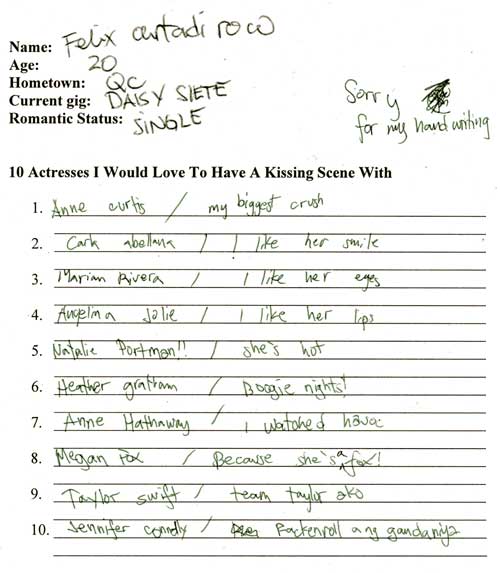 Name: Felix curtadi roco
Age: 20
Hometown: QC
Current gig: DAISY SIETE
Romantic Status: SiNGLE
Sorry
for my hand writing
10 Actresses I Would Love To Have A Kissing Scene With
1. Anne curtis / my biggest crush
2. Carla abellana / I like her smile
3. Marian Rivera / I like her eyes
4. Angelina Jolie / I like her lips
5. Natalie Portman!! / she's hot
6. Heather graham / Boogie nights!
7. Anne Hathaway / I watched havoc
8. Megan Fox / Because she's a fox!
9. Taylor swift / team taylor ako
10. Jennifer connelly / Packenroll ang ganda niya